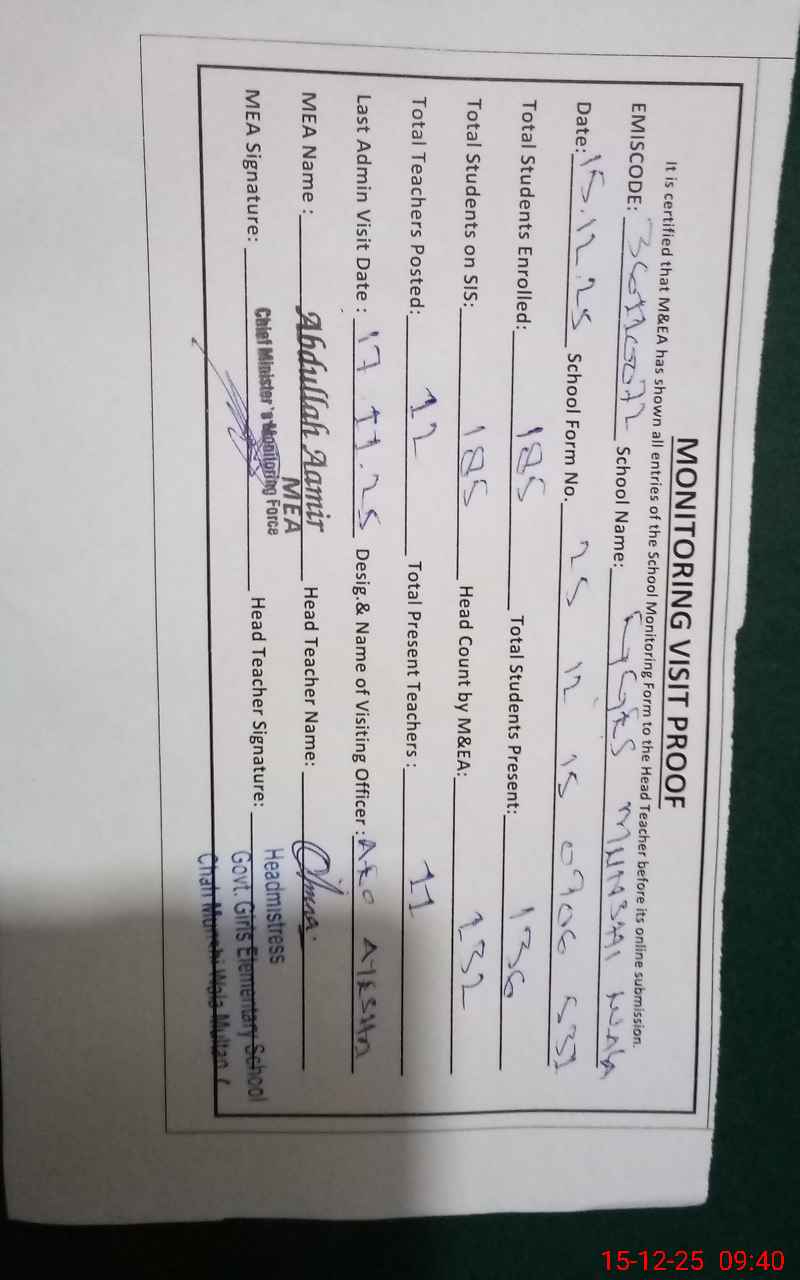 MONITORING VISIT PROOF
It is certified that M&EA has shown all entries of the School Monitoring Form to the Head Teacher before its online submission.
EMISCODE: School Name:
Date: 15.12.25 School Form No. 25 12 15 0906 531
Total Students Enrolled: 185 Total Students Present: 136
Total Students on SIS: 185 Head Count by M&EA: 132
Total Teachers Posted: 12 Total Present Teachers : 11
Last Admin Visit Date : 17.11.25 Desig.& Name of Visiting Officer :
MEA Name : Abdullah Aamir Head Teacher Name:
MEA
MEA Signature: Chief Minister's Monitoring Force Head Teacher Signature:
Headmistress
Govt. Girls Elementary School
Chah Munshi Wala Multan
15-12-25 09:40